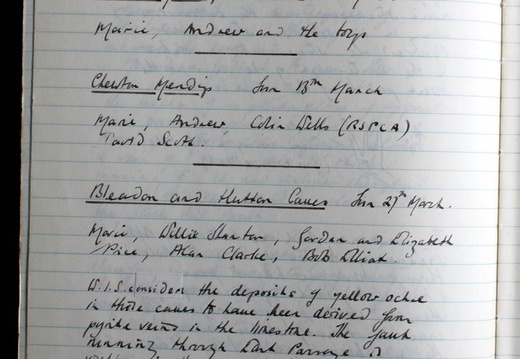 Marie, Andrew and the boys
Chewton Mendip Sun 13th March
Marie, Andrew, Colin Wells (RSPCA)
David Scott.
Bleadon and Hutton Caves Sun 27th March.
Marie, Willie Stanton, Gordon and Elizabeth
Price, Alan Clarke, Bob Elliot.
W.I.S. considers the deposits of yellow ochre
in those caves to have been derived from
pyrite veins in the limestone. The fault
running through Dark Passage is